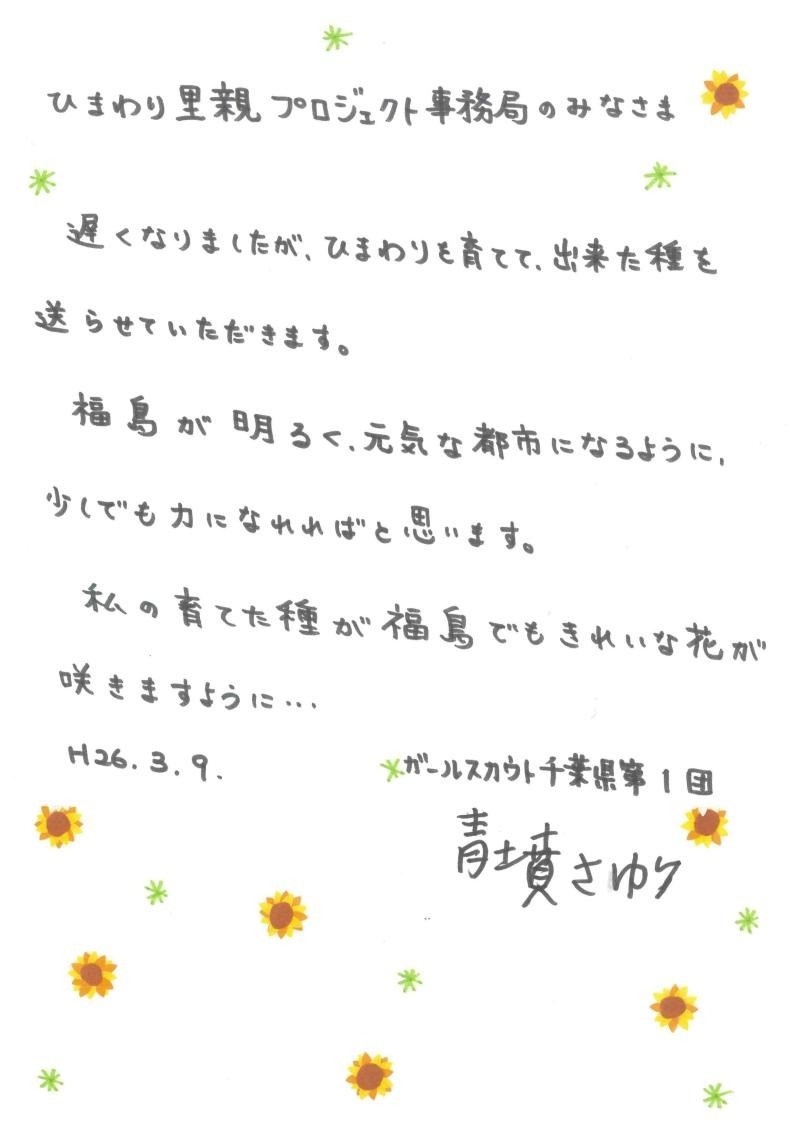 ひまわり里親プロジェクト事務局のみなさま
遅くなりましたが、ひまわりを育てて、出来た種を
送らせていただきます。
福島が明るく、元気な都市になるように、
少しでも力になれればと思います。
私の育てた種が福島でもきれいな花が
咲きますように…
H26.3.9.
ガールスカウト千葉県第1団
青墳さゆり